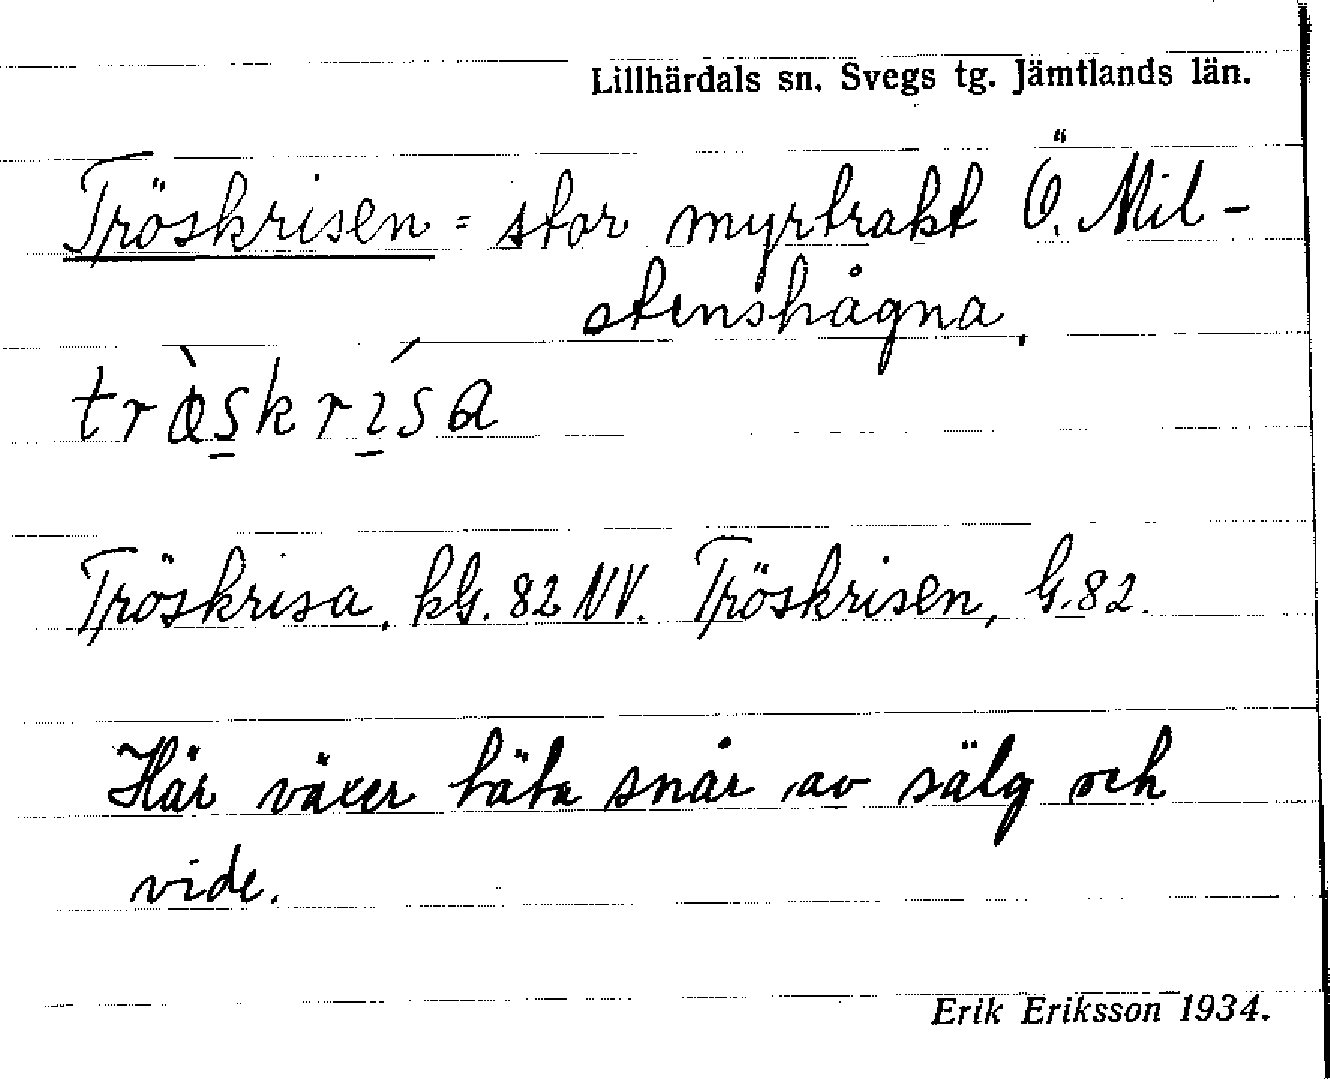 Lillhärdals sn. Svegs tg. Jämtlands län.
Tröskrisen = stor myrtrakt Ö. Mil-
stenshågna.
trɵ̀s̠krɩ̠́sa
Tröskrisa, kG. 82 NV. Tröskrisen, G.82.
Här växer täta snår av sälg och
vide.
Erik Eriksson 1934.